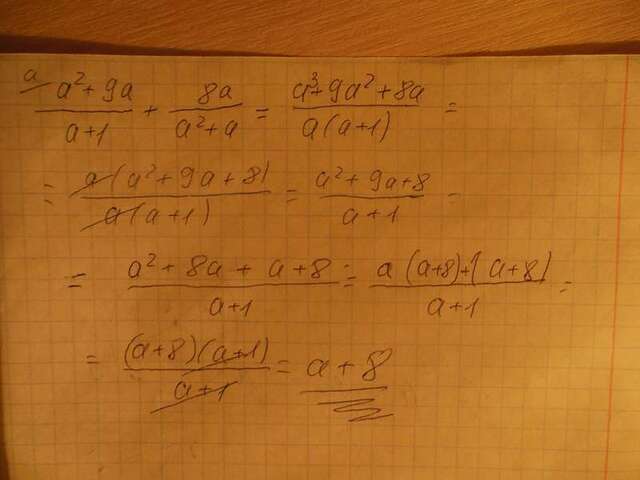 a (a² + 9a)/(a+1) + 8a/(a² + a) = (a³ + 9a² + 8a)/(a(a+1)) =
= (a(a² + 9a + 8))/(a(a+1)) = (a² + 9a + 8)/(a+1) =
= (a² + 8a + a + 8)/(a+1) = (a(a+8) + 1(a+8))/(a+1) =
= ((a+8)(a+1))/(a+1) = a + 8